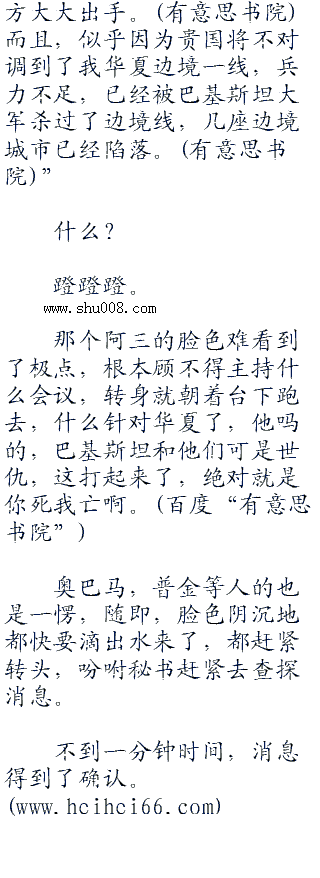 方大大出手。(有意思书院)
而且，似乎因为贵国将不对
调到了我华夏边境一线，兵
力不足，已经被巴基斯坦大
军杀过了边境线，几座边境
城市已经陷落。(有意思书
院)”
什么？
蹬蹬蹬。
www.shu008.com
那个阿三的脸色难看到
了极点，根本顾不得主持什
么会议，转身就朝着台下跑
去，什么针对华夏了，他吗
的，巴基斯坦和他们可是世
仇，这打起来了，绝对就是
你死我亡啊。(百度“有意思
书院”)
奥巴马，普金等人的也
是一愣，随即，脸色阴沉地
都快要滴出水来了，都赶紧
转头，吩咐秘书赶紧去查探
消息。
不到一分钟时间，消息
得到了确认。
(www.hcihci66.com)